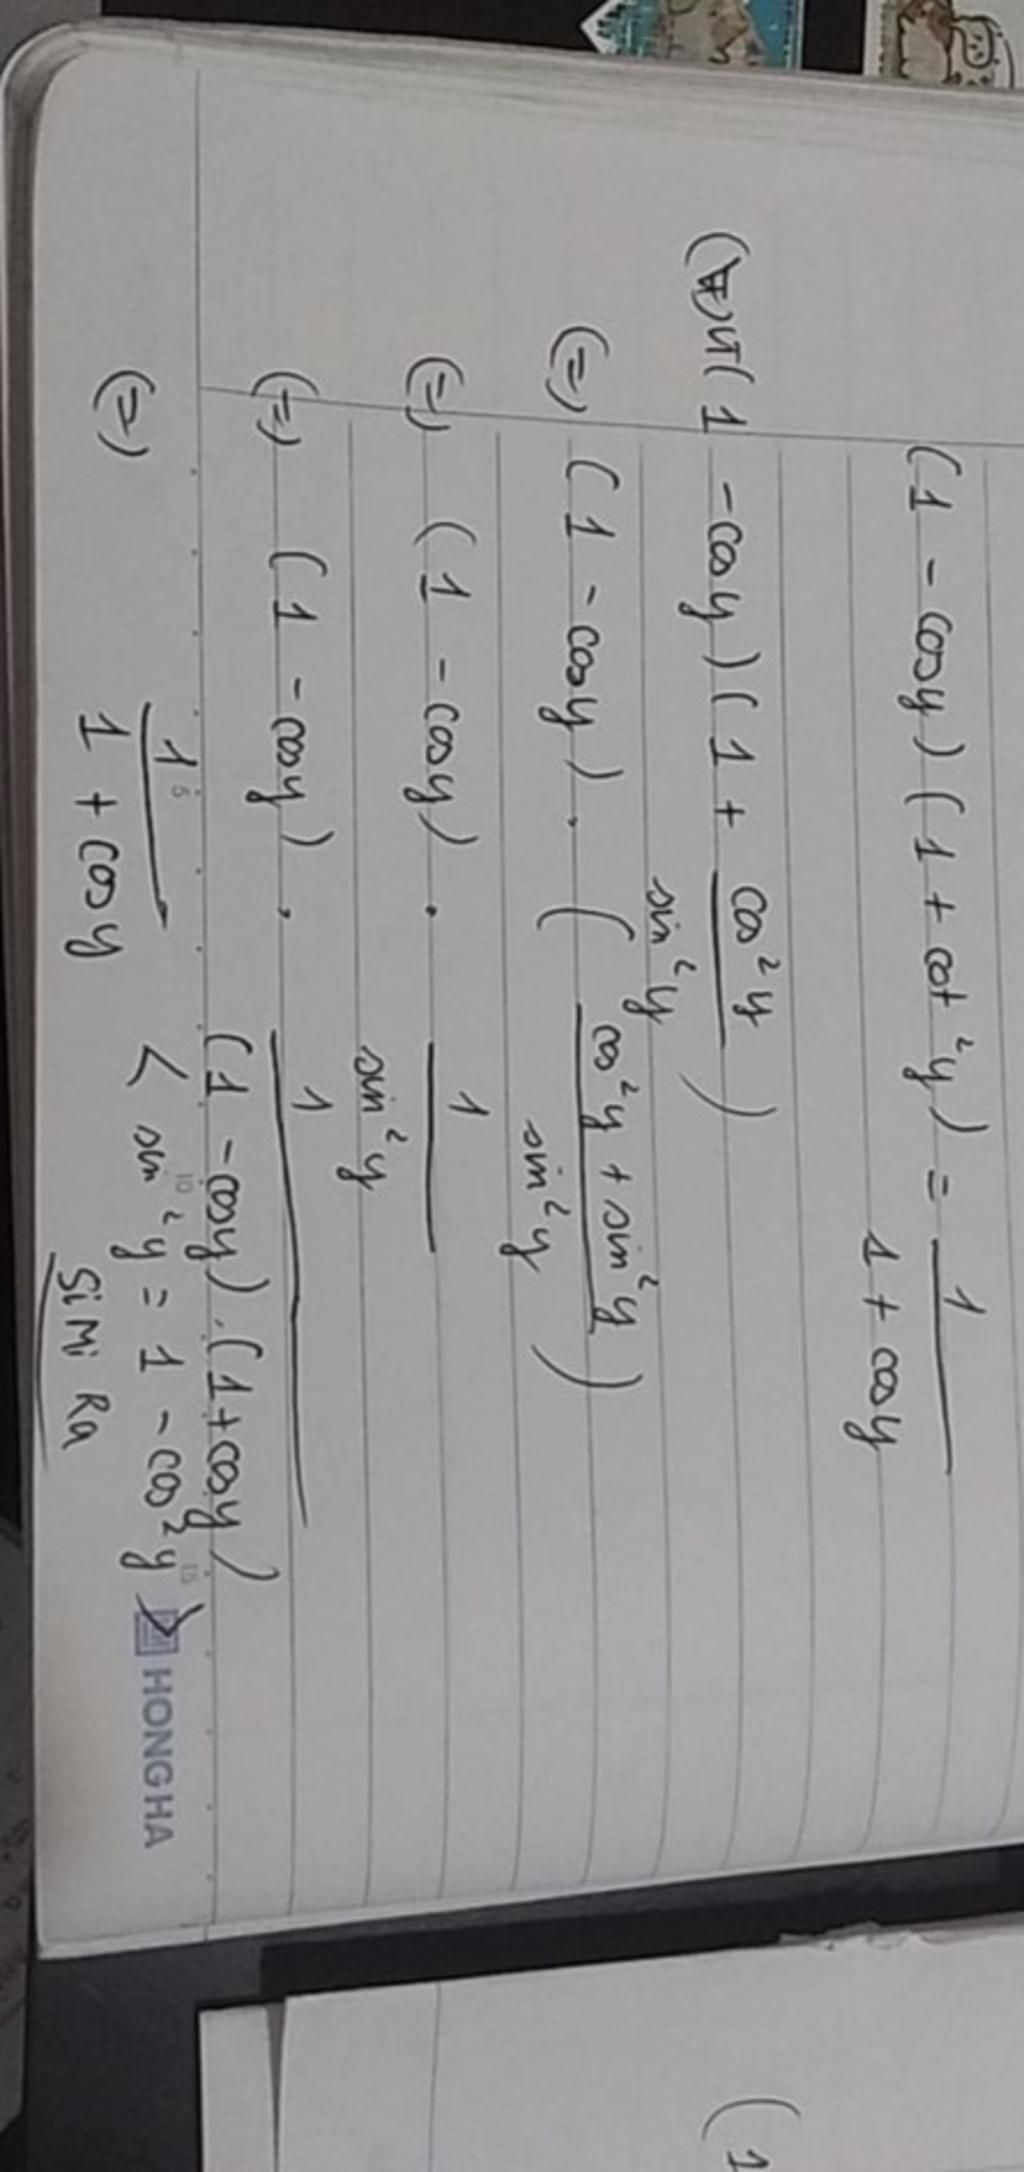 (1 - cosy) (1 + cot²y) = 1/(1 + cosy)
VT (1 - cosy) (1 + cos²y/sin²y)
(=) (1 - cosy) . (cos²y + sin²y/sin²y)
(=) (1 - cosy) . 1/sin²y
(=) (1 - cosy) . 1/(1 - cosy).(1 + cosy)
(=) 1/(1 + cosy) < sin²y = 1 - cos²y >
SiMi Ra
5 10 15
HONG HA
(1